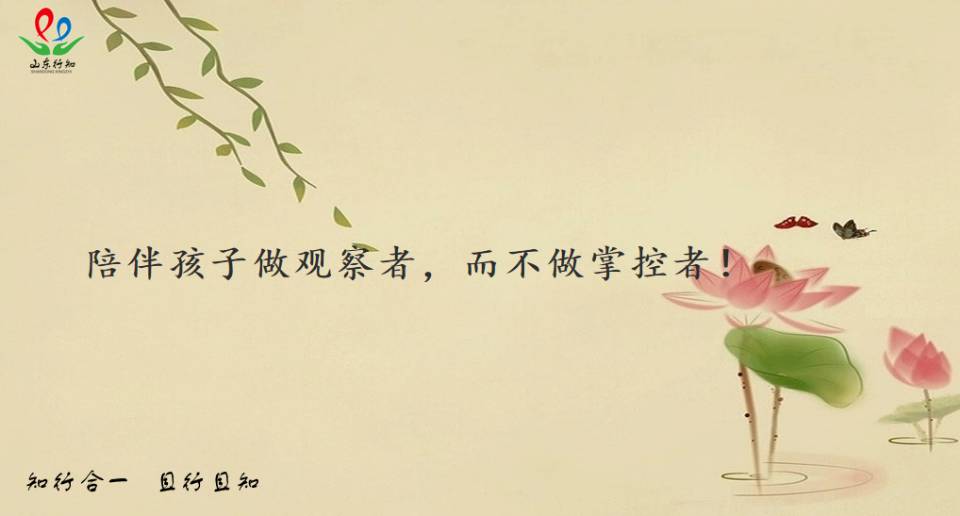 山东行知
SHANDONG XINGZHI
陪伴孩子做观察者，而不做掌控者！
知行合一 且行且知